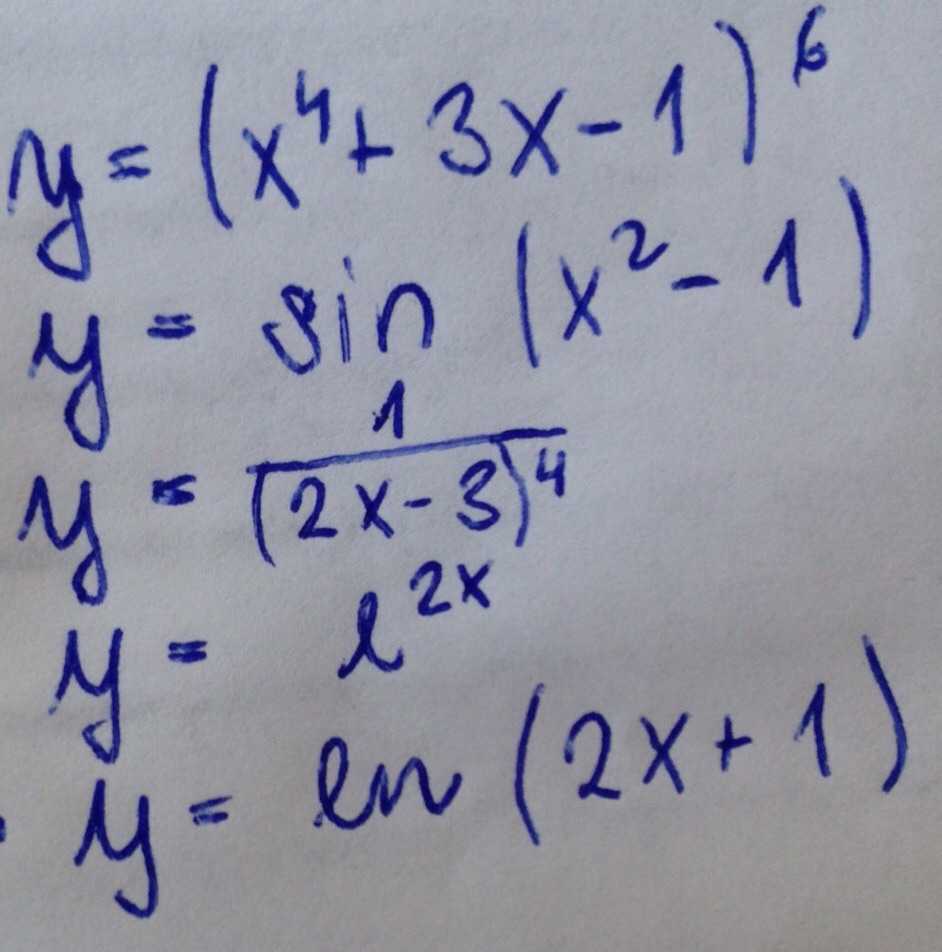 y = (x⁴ + 3x - 1)⁶
y = sin (x² - 1)
y = 1/(2x - 3)⁴
y = e²ˣ
y = ln (2x + 1)